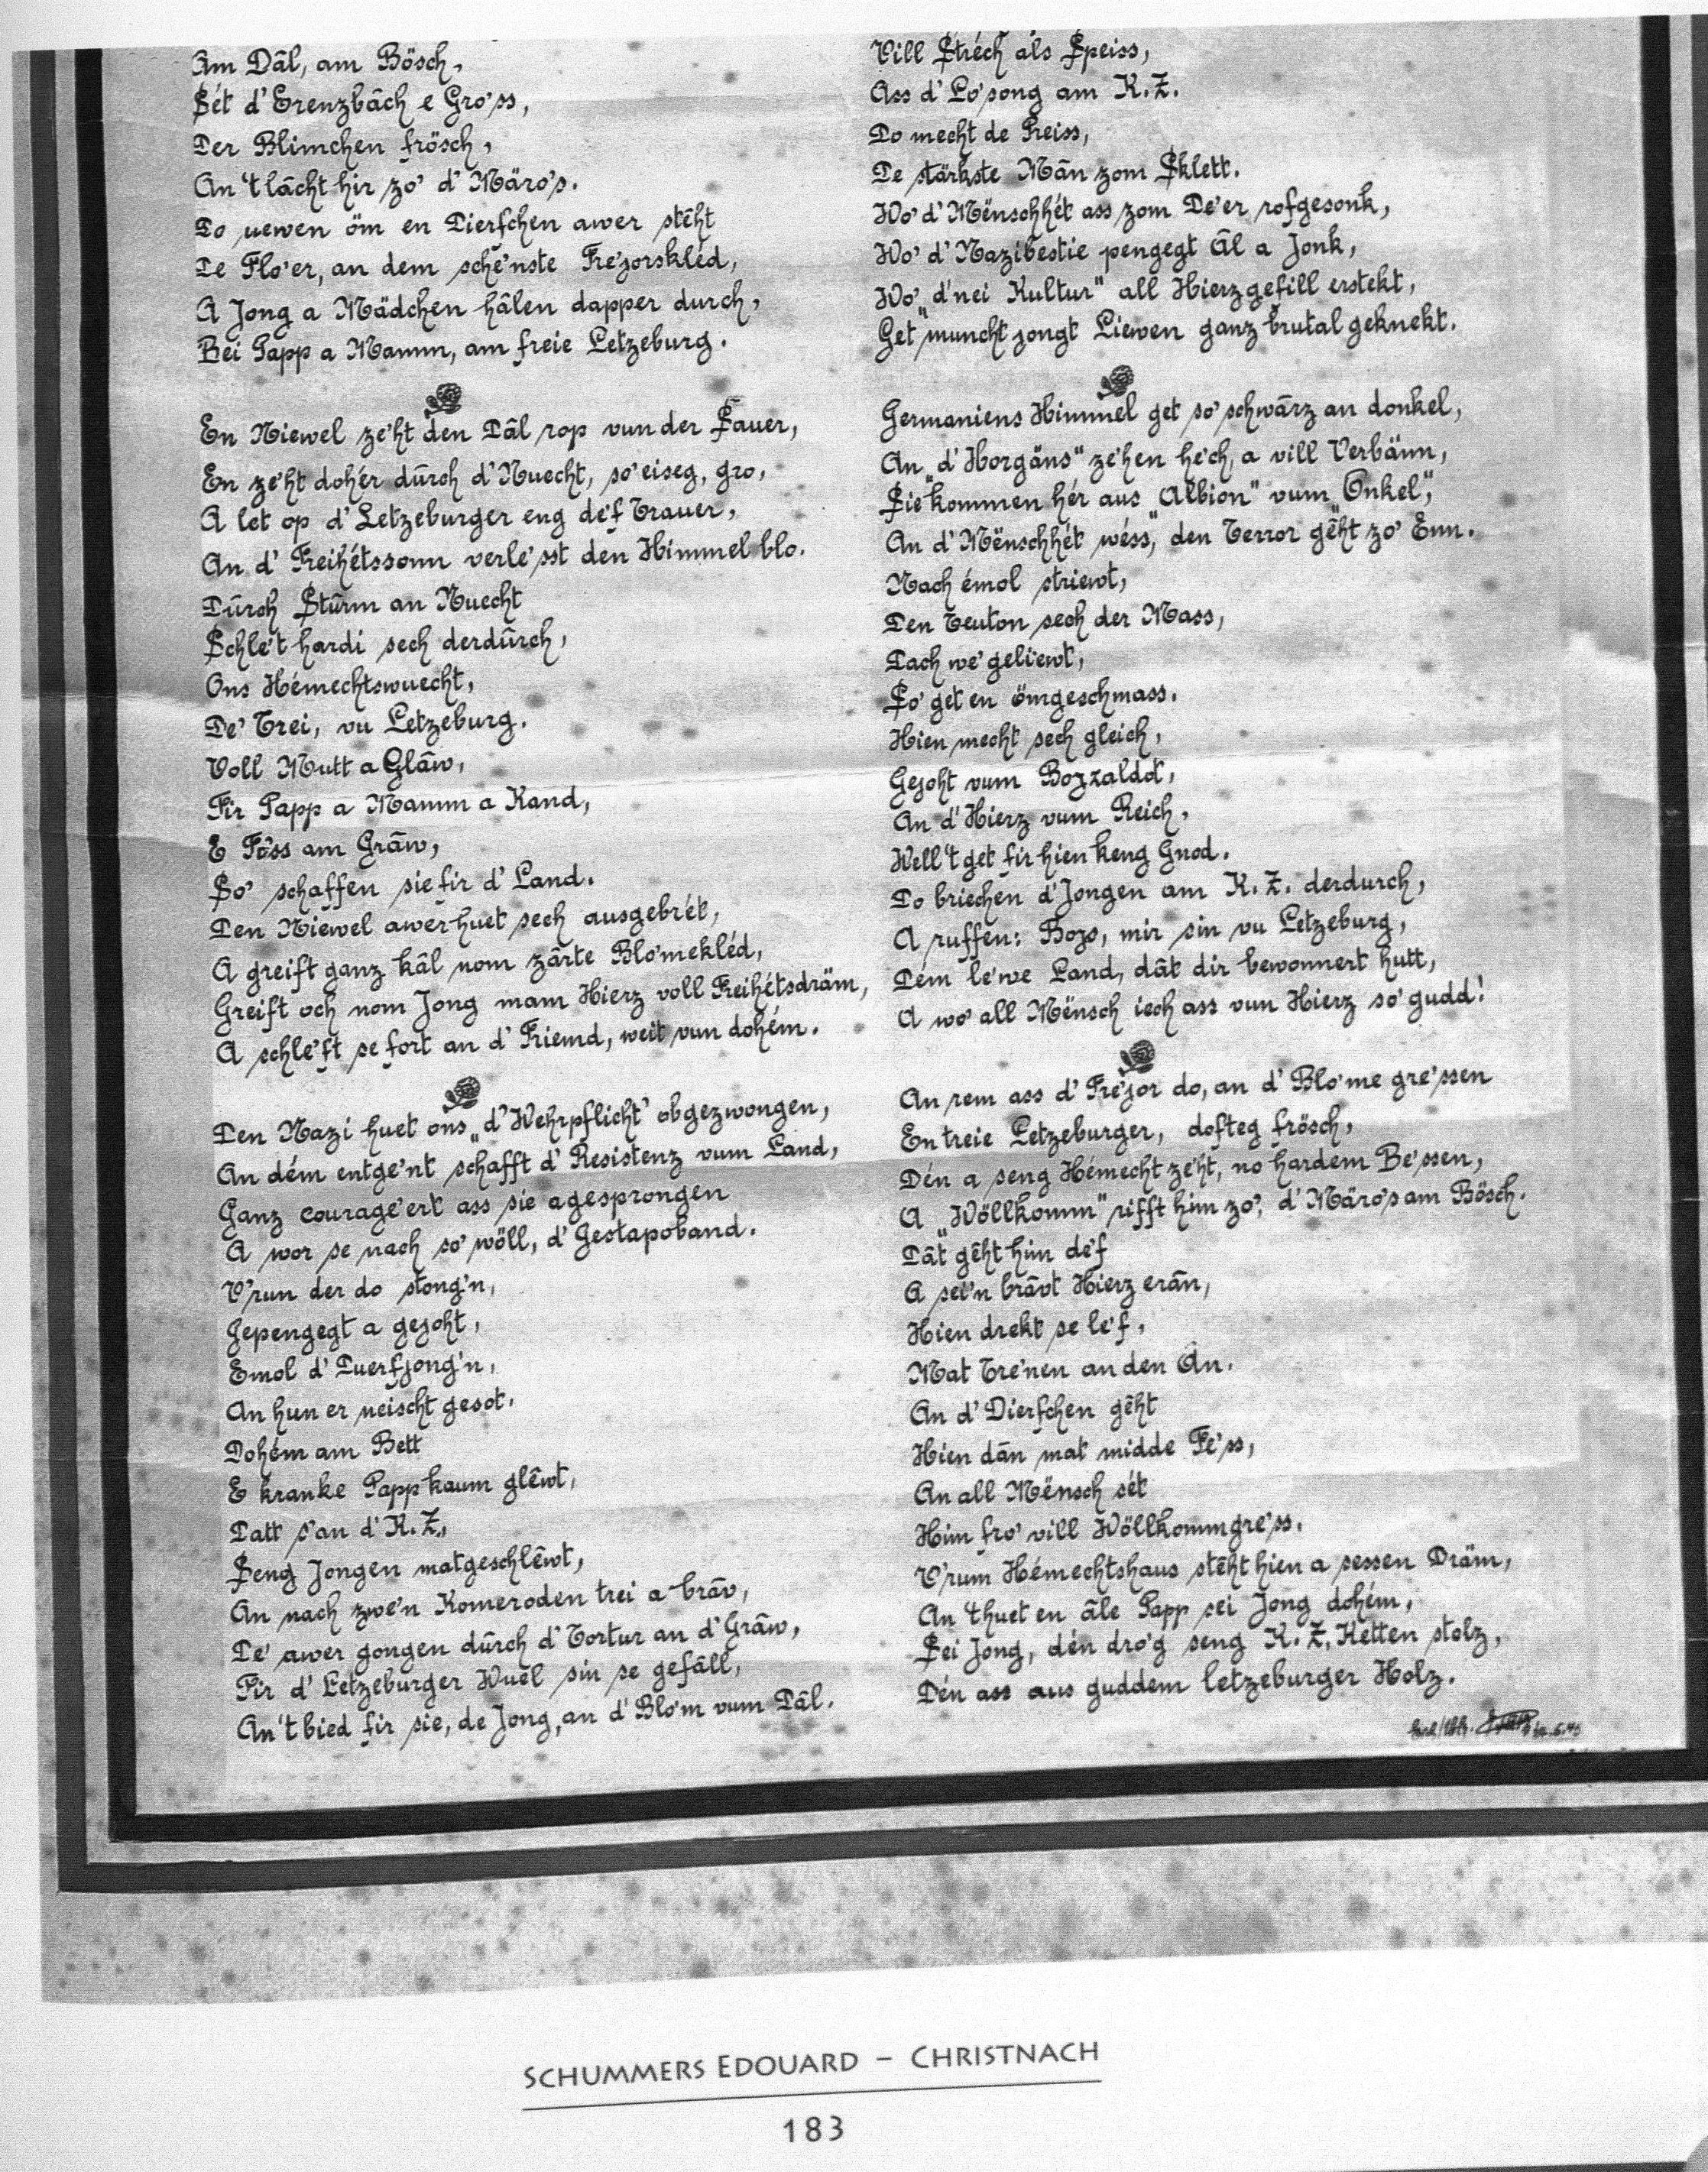 Am Dâl, am Bösch,
Sét d'Erenzbâch e Gro'ss,
Der Blimchen frösch,
An 't lâcht hir zo' d' Märo's.
Do uewen öm en Dierfchen awer stêht
De Flo'er, an dem sche'nste Fre'jorskléd,
A Jong a Mädchen hâlen dapper durch,
Bei Papp a Mamm, am freie Letzeburg.
En Niewel ze'ht den Dâl rop vun der Sauer,
En ze'ht dohér dûrch d'Nuecht, so' eiseg, gro,
A let op d'Letzeburger eng de'f Trauer,
An d' Freihétssonn verle'sst den Himmel blo.
Dûrch Stûrm an Nuecht
Schle't hardi sech derdûrch,
Ons Hémechtswuecht,
De' Trei, vu Letzeburg.
Voll Mutt a Glâw,
Fir Papp a Mamm a Kand,
E Fo'ss am Grâw,
So' schaffen sie fir d' Land.
Den Niewel awer huet sech ausgebrét,
A greift ganz kâl nom zârte Blo'mekléd,
Greift och nom Jong mam Hierz voll Freihétsdräm,
A schle'ft se fort an d' Friemd, weit vun dohém.
Den Nazi huet ons „d'Wehrpflicht" obgezwongen,
An dém entge'nt schafft d' Resistenz vum Land,
Ganz courage'ert ass sie agesprongen
A wor se nach so' wöll, d'Gestapoband.
V'run der do stong'n,
Gepengegt a gejoht,
Emol d' Duerfjong'n,
An hun er neischt gesot.
Dohém am Bett
E kranke Papp kaum glêwt,
Datt s'an d'K.Z,
Seng Jongen matgeschlêwt,
An nach zwe'n Komeroden trei a brâv,
De' awer gongen dûrch d'Tortur an d'Grâw,
Fir d' Letzeburger Wuel sin se gefâll,
An 't bied fir sie, de Jong, an d'Blo'm vum Dâl.
Vill Stréch als Speiss,
Ass d'Lo'song am K.Z.
Do mecht de Preiss,
De stärkste Mân zom Sklett.
Wo' d'Mënschhét ass zom De'er rofgesonk,
Wo' d'Nazibestie pengegt Âl a Jonk,
Wo' „d'nei Kultur" all Hierzgefill erstekt,
Get muncht jongt Liewen ganz brutal geknekt.
Germaniens Himmel get so' schwârz an donkel,
An „d'Horgäns" ze'hen he'ch, a vill Verbänn,
Sie „kommen hér aus Albion" vum „Onkel",
An d'Mënschhét wéss, den Terror gêht zo' Enn.
Nach émol striewt,
Den Teuton sech der Mass,
Dach we' geliewt,
So' get en ömgeschmass.
Hien mecht sech gleich,
Gejoht vum Bozzaldot,
An d'Hierz vum Reich,
Well 't get fir hien keng Gnod.
Do briechen d'Jongen am K.Z. derdurch,
A ruffen: Bojs, mir sin vu Letzeburg,
Dem le'we Land, dât dir bewonnert hutt,
A wo' all Mënsch iech ass vun Hierz so' gudd!
An rem ass d'Fre'jor do, an d' Blo'me gre'ssen
En treie Letzeburger, dofteg frösch,
Dén a seng Hémecht ze'ht, no hardem Be'ssen,
A „Wöllkomm" rifft him zo', d'Märo's am Bösch.
Dât gêht him de'f
A sei'n brâvt Hierz erân,
Hien drekt se le'f,
Mat Tre'nen an den An.
An d'Dierfchen gêht
Hien dân mat midde Fe'ss,
An all Mënsch sét
Him fro' vill Wöllkommgre'ss.
V'rum Hémechtshaus stêht hien a sessen Dräm,
An 't huet en âle Papp sei Jong dohém,
Sei Jong, dén dro'g seng K.Z, Ketten stolz,
Dén ass aus guddem letzeburger Holz.
SCHUMMERS EDOUARD – CHRISTNACH
183